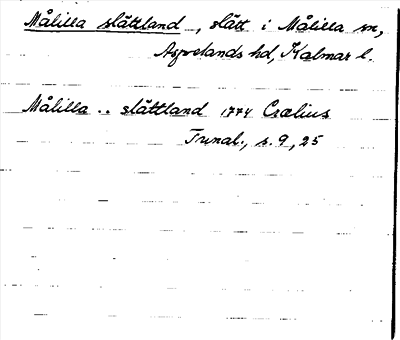 Målilla slättland, slätt i Målilla sn,
Aspelands hd, Kalmar l.
Målilla .. slättland 1774 Crælius
Tunal., s. 9, 25